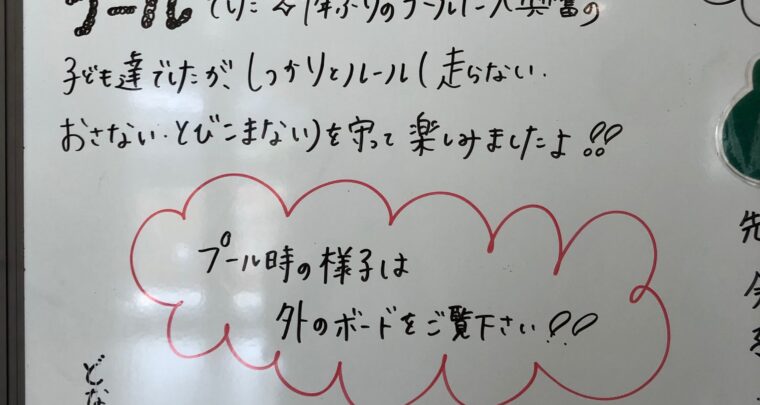 プールでした☆1年ぶりのプールに大興奮の
子ども達でしたが、しっかりとルール(走らない・
おさない・とびこまない)を守って楽しみましたよ!!
プール時の様子は
外のボードをご覧下さい!!
どな
先